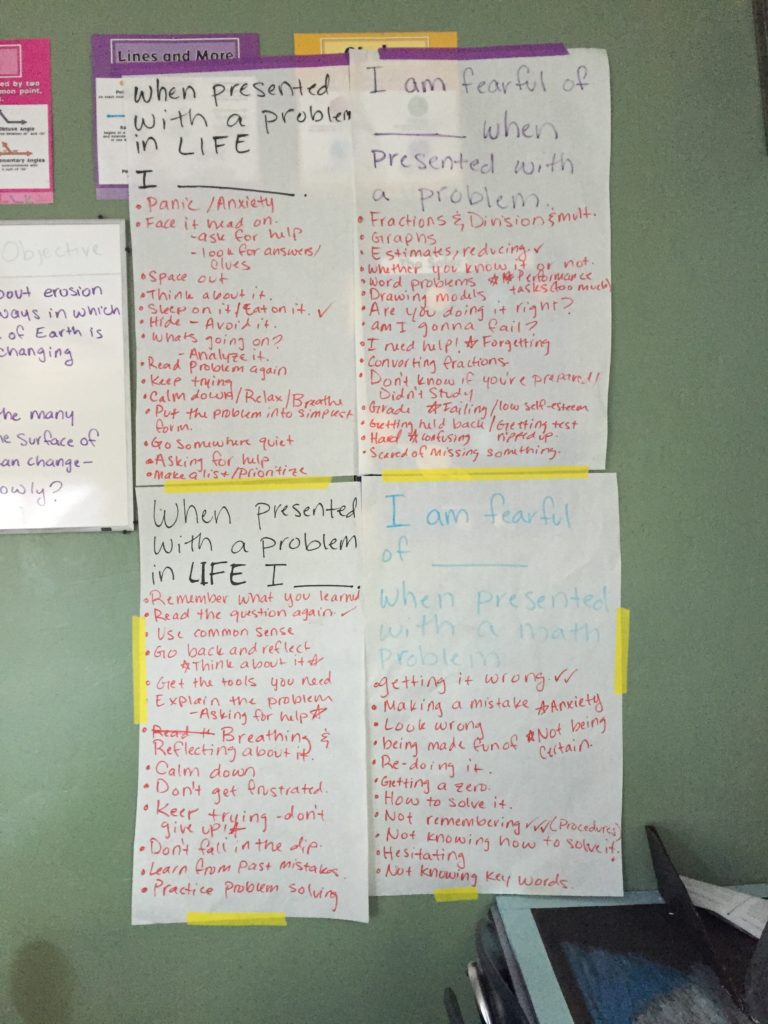 ed by two
mmon point,
Obtuse Angle
mentary Angles
Lines and More
Objective
bout erosion
ways in which
of Earth is
changing
he many
e surface of
an change-
owly?
When presented
with a problem
in LIFE
I ________.
• Panic / Anxiety
• Face it head on.
-ask for help
-look for answers/
clues
• Space out
• Think about it.
• Sleep on it/Eat on it. ✓
• Hide - Avoid it.
• Whats going on?
-Analyze it.
• Read Problem again
• Keep trying
• Calm down/Relax/Breathe
• Put the problem into simplest
form.
• Go somewhere quiet
• Asking for help
• Make a list/prioritize
I am fearful of
________ when
presented with
a problem.
• Fractions & Division & mult.
• Graphs
• Estimates/reducing ✓
• Whether you know it or not.
• Word problems ☆☆ Performance
tasks (too much)
• Drawing models
• Are you doing it right?
• am I gonna fail?
• I need help! ☆ Forgetting
• Converting fractions
• Don't know if you're prepared/
Didn't study
• Grade ☆ Failing/low self-esteem
• Getting held back/Getting test
ripped up.
• Hard ☆ confusing
• Scared of missing something.
When presented
with a problem
in LIFE I ____.
• Remember what you learned
• Read the question again. ✓
• Use common sense
• Go back and reflect
☆ Think about it ☆
• Get the tools you need
• Explain the problem
-Asking for help ☆
• Breathing &
Reflecting about it.
• Calm down
• Don't get frustrated.
• Keep trying -don't
give up! ☆
• Don't fall in the dip.
• Learn from past mistakes
• Practice problem solving
I am fearful
of ________
when presented
with a math
problem
• getting it wrong. ✓✓
• Making a mistake ☆ Anxiety
• Look wrong
• being made fun of ☆ Not being
certain.
• Re-doing it.
• Getting a zero.
• How to solve it.
• Not remembering ✓✓✓ (Procedures)
• Not knowing how to solve it.
• Hesitating
• Not knowing key words.